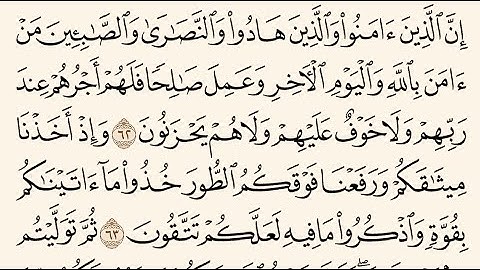 إِنَّ ٱلَّذِينَ ءَامَنُوا۟ وَٱلَّذِينَ هَادُوا۟ وَٱلنَّصَـٰرَىٰ وَٱلصَّـٰبِـِٔينَ مَنْ
ءَامَنَ بِٱللَّهِ وَٱلْيَوْمِ ٱلْـَٔاخِرِ وَعَمِلَ صَـٰلِحًا فَلَهُمْ أَجْرُهُمْ عِندَ
رَبِّهِمْ وَلَا خَوْفٌ عَلَيْهِمْ وَلَا هُمْ يَحْزَنُونَ ٦٢ وَإِذْ أَخَذْنَا
مِيثَـٰقَكُمْ وَرَفَعْنَا فَوْقَكُمُ ٱلطُّورَ خُذُوا۟ مَآ ءَاتَيْنَـٰكُم
بِقُوَّةٍ وَٱذْكُرُوا۟ مَا فِيهِ لَعَلَّكُمْ تَتَّقُونَ ٦٣ ثُمَّ تَوَلَّيْتُم